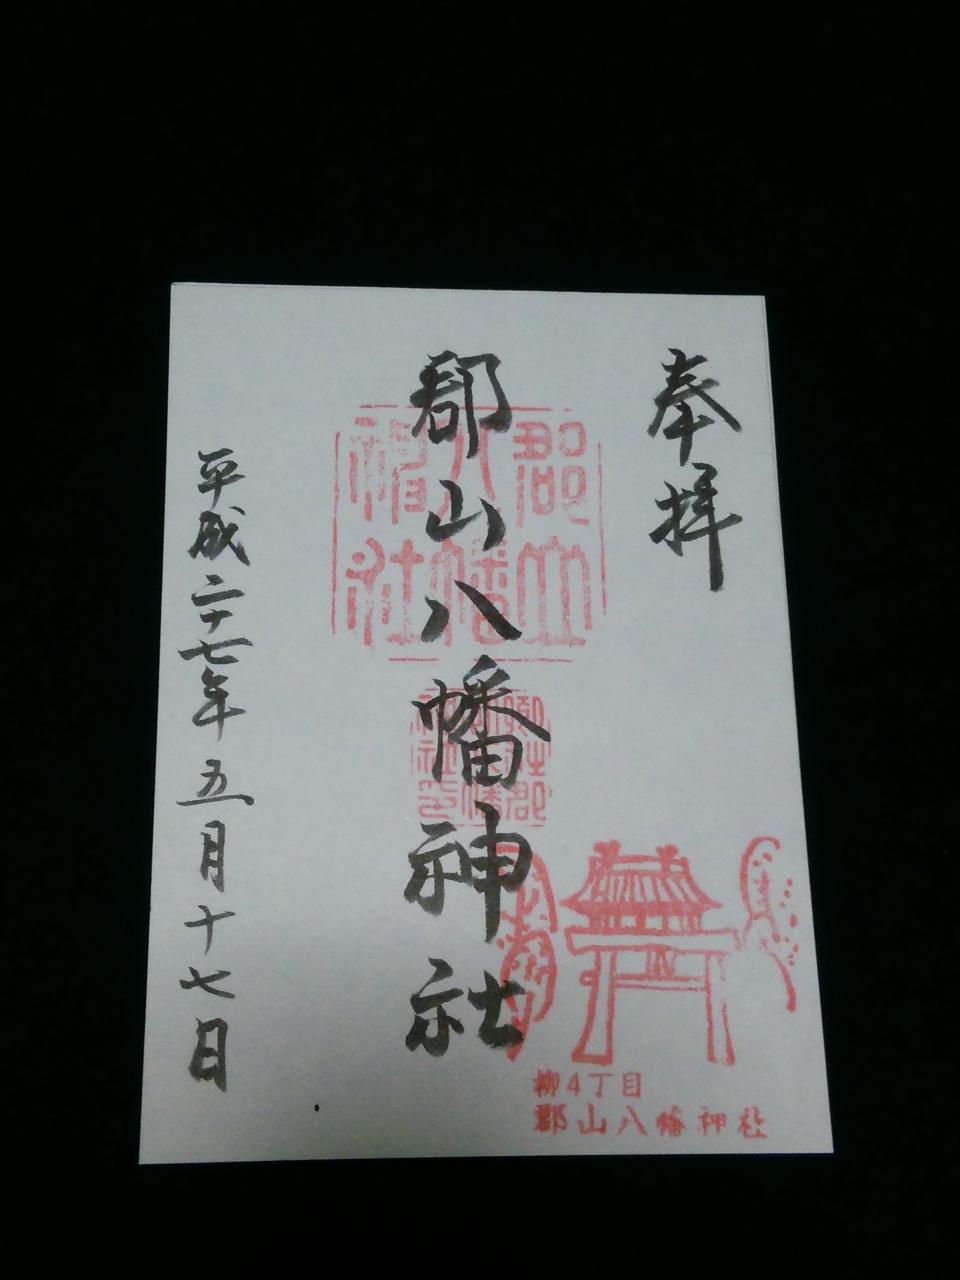 奉拝
郡山八幡神社
平成二十七年五月十七日
郡山
八幡
神社
柳4丁目
郡山八幡神社